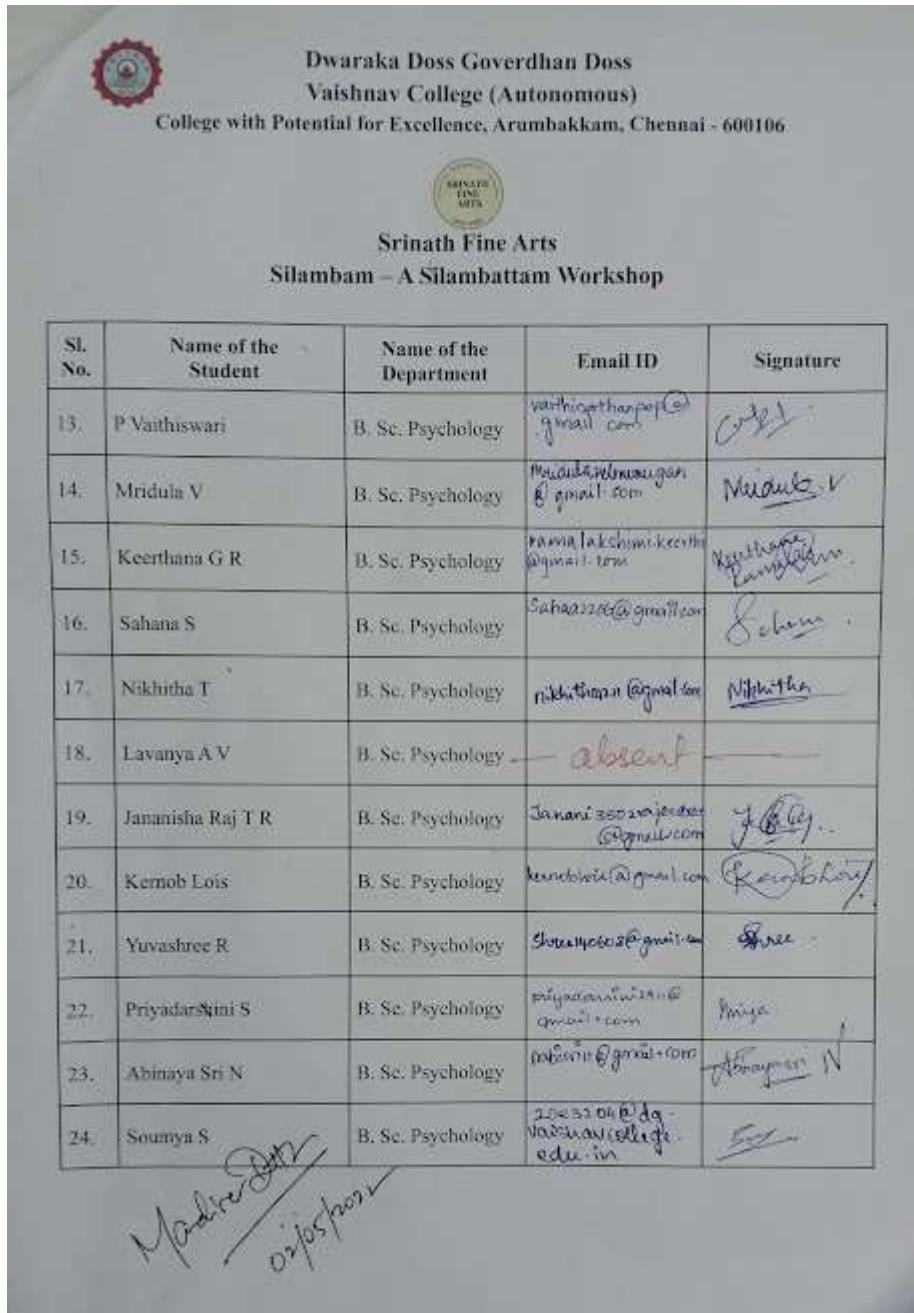 Dwaraka Doss Goverdhan Doss
Vaishnav College (Autonomous)
College with Potential for Excellence, Arumbakkam, Chennai - 600106
SRINATH
FINE
ARTS
Srinath Fine Arts
Silambam – A Silambattam Workshop
Sl. No. Name of the Student Name of the Department Email ID Signature
13. P Vaithiswari B. Sc. Psychology
gmail com
14. Mridula V B. Sc. Psychology
@ gmail.com Mridula V
15. Keerthana G R B. Sc. Psychology ramalakshimi.keerthi
@gmail.com Keerthana
16. Sahana S B. Sc. Psychology
17. Nikhitha T B. Sc. Psychology Nikhitha
18. Lavanya A V B. Sc. Psychology absent
19. Jananisha Raj T R B. Sc. Psychology
@gmail.com
20. Kernob Lois B. Sc. Psychology kernoblois@gmail.com Kernob Lois
21. Yuvashree R B. Sc. Psychology Shree
22. Priyadarshini S B. Sc. Psychology
gmail.com Priya
23. Abinaya Sri N B. Sc. Psychology
24. Soumya S B. Sc. Psychology 2023204@dg-
vaishnavcollege.
edu.in
02/05/2022